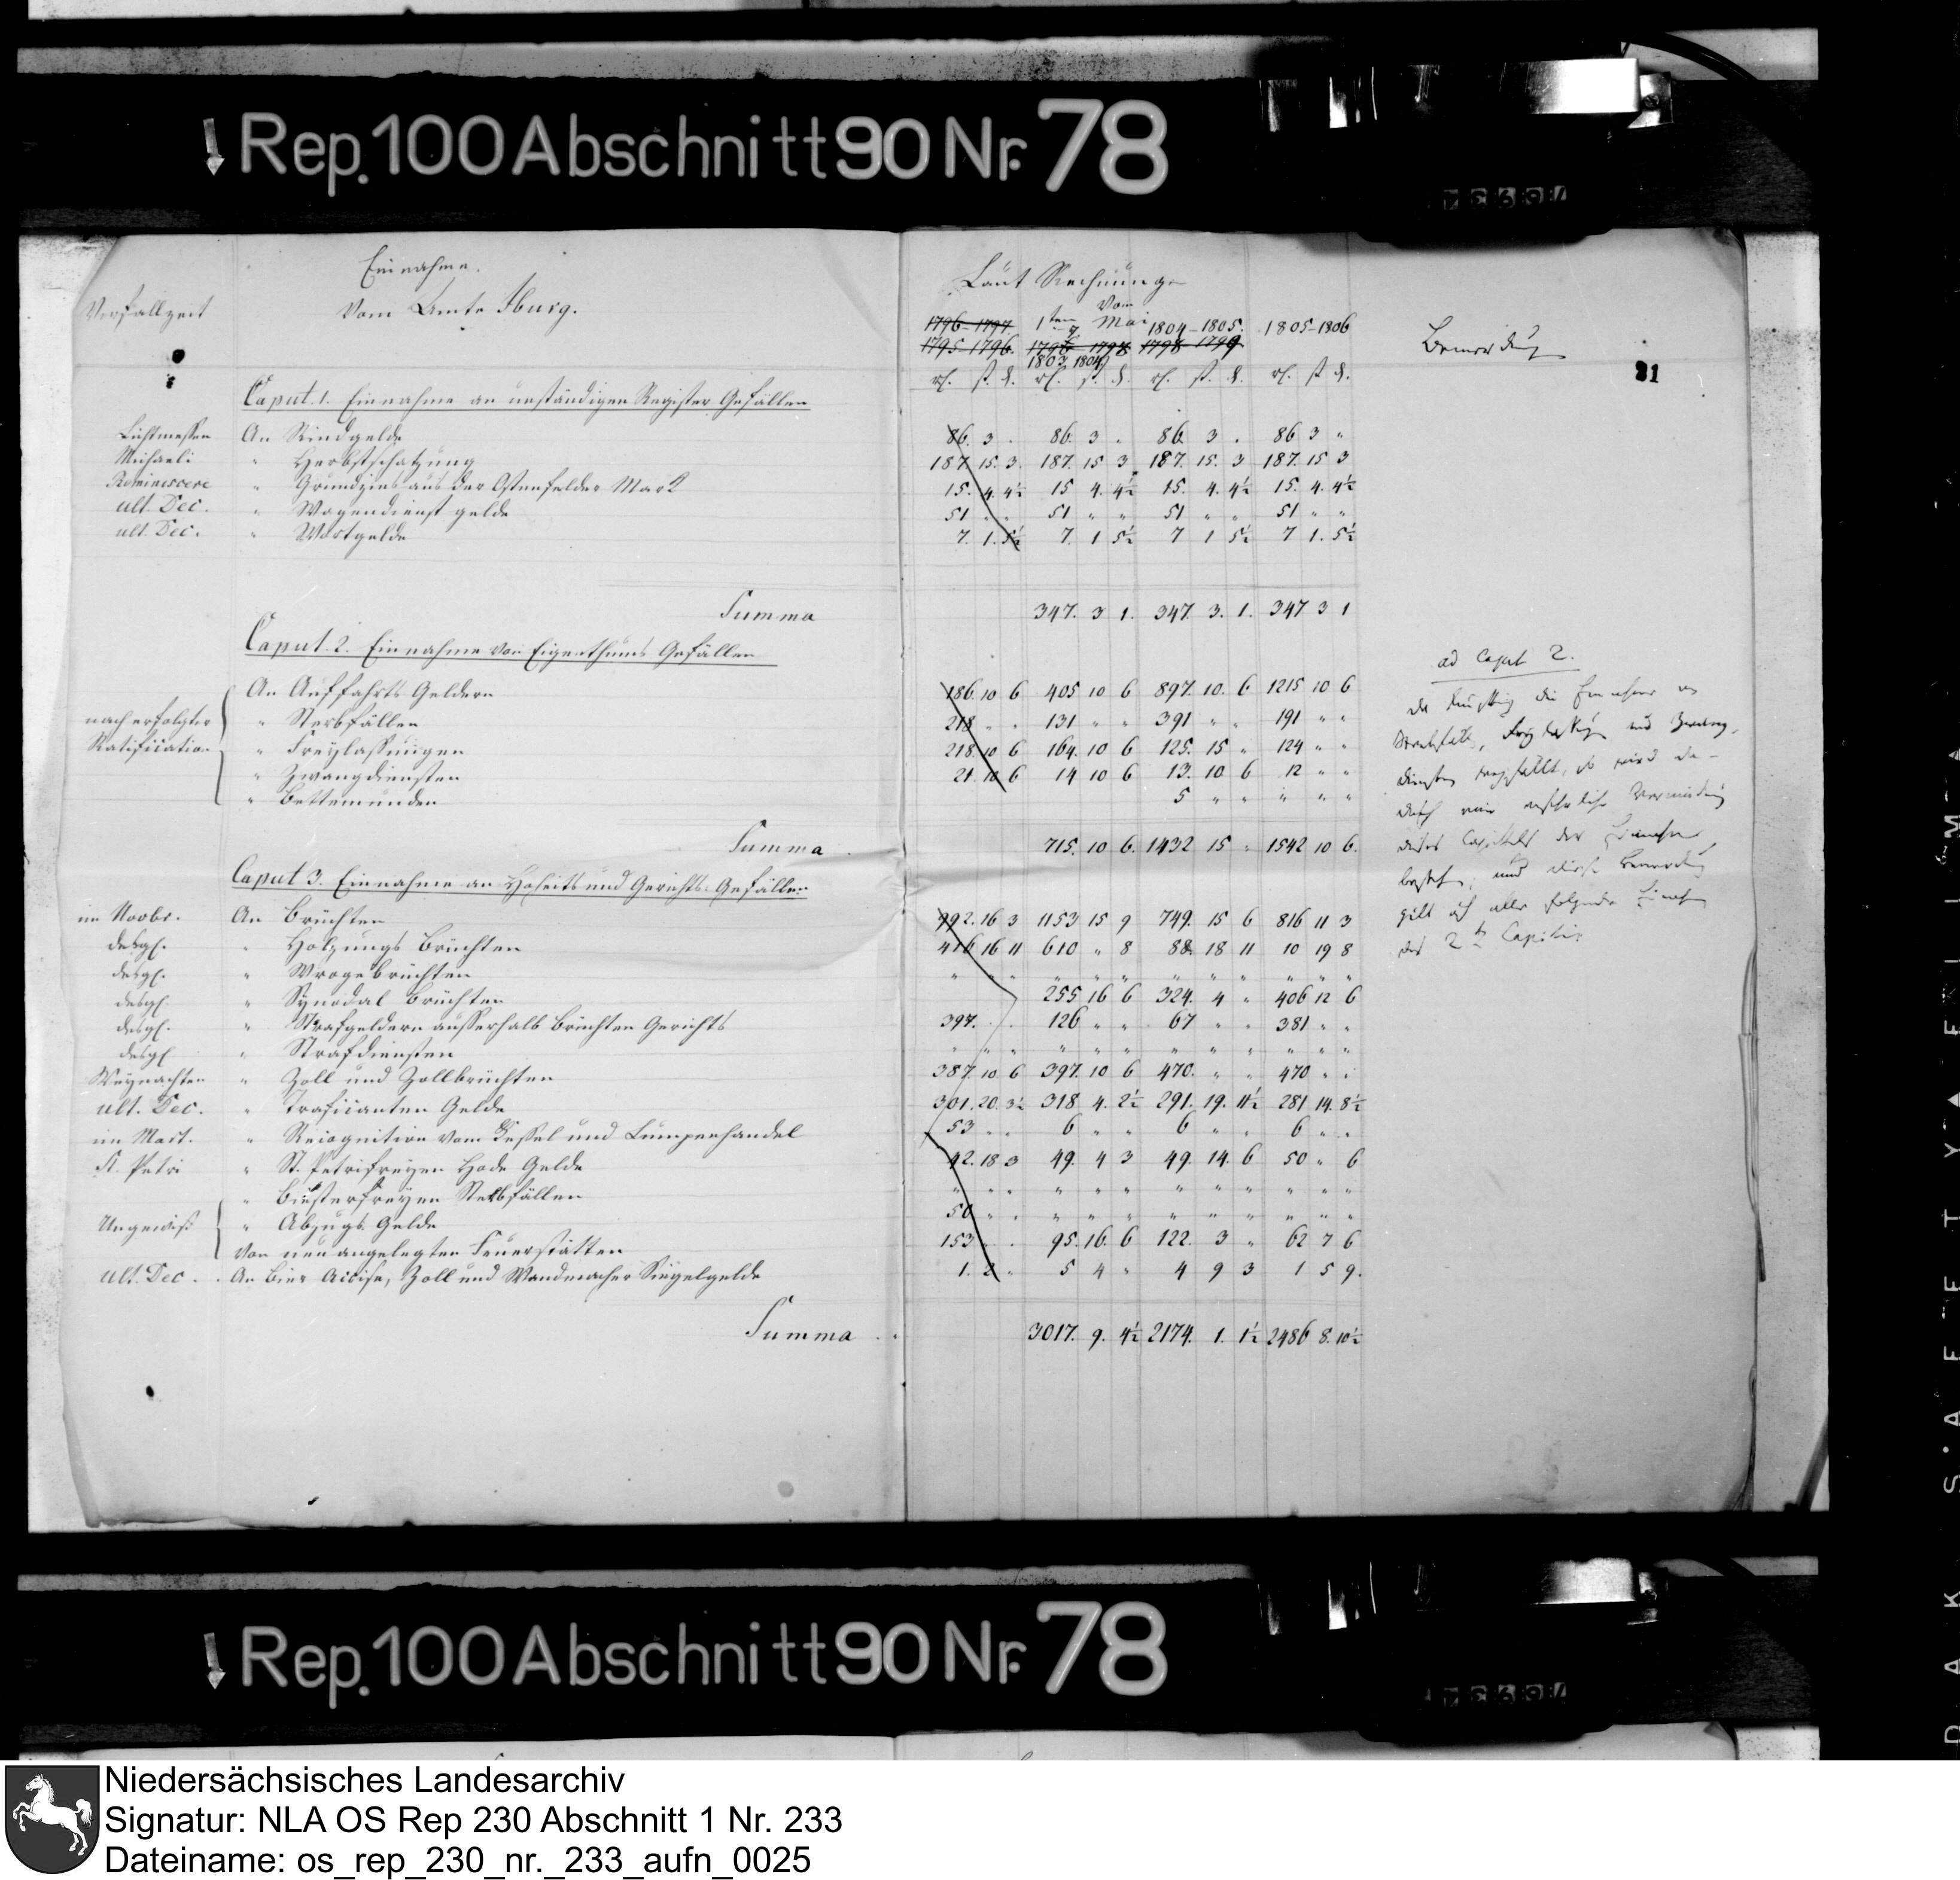 Rep. 100 Abschnitt 90 Nr. 78
Einnahme.
Verfallzeit Vom Amte Iburg.
Laut Rechnung
vom
1796-1797 1ten Mai 1804-1805. 1805-1806
1795-1796. 1797 1798 1798 1799
1803 1804
Bemerkung
21
Caput. 1. Einnahme an unständigen Register Gefällen
Lichtmessen An Rindgelde 86. 3 . 86. 3 " 86 3 . 86 3 "
Michaeli " Herbstschatzung 187 15. 3. 187. 15 3 187. 15. 3 187. 15 3
Reminiscere " Grundzins aus der Ostenfelder Mark 15. 4. 4½ 15 4. 4½ 15. 4. 4½ 15. 4. 4½
ult. Dec. " Wagendienst gelde 51 " " 51 " " 51 " " 51 " "
ult. Dec. " Wortgelde 7. 1. 5½ 7. 1 5½ 7 1 5½ 7 1. 5½
Summa 347. 3 1. 347 3. 1. 347 3 1
Caput. 2. Einnahme von Eigenthums Gefällen
An Auffahrts Geldern 186. 10 6 405 10 6 897. 10. 6 1215 10 6
nach erfolgter " Sterbfällen 218 " " 131 " " 391 " " 191 " "
Ratification " Freylassungen 218. 10 6 164. 10 6 125. 15 " 124 " "
" Zwangdiensten 21. 10 6 14 10 6 13. 10 6 12 " "
" Bettemunden 5 " " " " "
Summa 715. 10 6. 1432 15 " 1542 10 6.
ad Caput 2.
da künftig die Einnahme
Sterbfälle, und Zwang-
diensten wegfällt, so wird da-
durch eine Verminderung
dieses Capitels der Einnahme
und diese Bemerkung
gilt alle folgende
des 2ten
Caput 3. Einnahme an Hoheits und Gerichts-Gefällen
im Novbr. An Brüchten 992. 16 3 1153 15 9 749. 15 6 816 11 3
desgl. " Holzungs Brüchten 416 16 11 610 " 8 88 18 11 10 19 8
desgl. " Wrogebrüchten " " " " " " " " " " " "
desgl. " Synodal Brüchten 255 16 6 324. 4 " 406 12 6
desgl. " Strafgeldern ausserhalb Brüchten Gerichts 397. . . 126 " " 67 " " 381 " "
desgl " Strafdiensten " " " " " " " " " " " "
Weynachten " Zoll und Zollbrüchten 387. 10 6 397. 10 6 470. " " 470 " "
ult. Dec. " Traficanten Gelde 301. 20. 3½ 318 4. 2½ 291. 19. 11½ 281 14. 8½
im Mart. " Recognition vom Kessel und Lumpenhandel 53 " " 6 " " 6 " " 6 " "
St. Petri " St. Petrifreyen Hode Gelde 42. 18 3 49. 4 3 49. 14. 6 50 " 6
" Biesterfreyen Sterbfällen " " " " " " " " " " " "
Ungewiß " Abzugs Gelde 50 " " " " " " " " " " "
Von neu angelegten Feuerstätten 153 . . 95. 16. 6 122. 3 " 62 7 6
ult. Dec. An Bier Accise, Zoll und Wandmacher Siegelgelde 1. 2 " 5 4 " 4 9 3 1 5 9.
Summa 3017. 9. 4½ 2174. 1. 1½ 2486 8. 10½
Rep. 100 Abschnitt 90 Nr. 78
Niedersächsisches Landesarchiv
Signatur: NLA OS Rep 230 Abschnitt 1 Nr. 233
Dateiname: os_rep_230_nr._233_aufn_0025